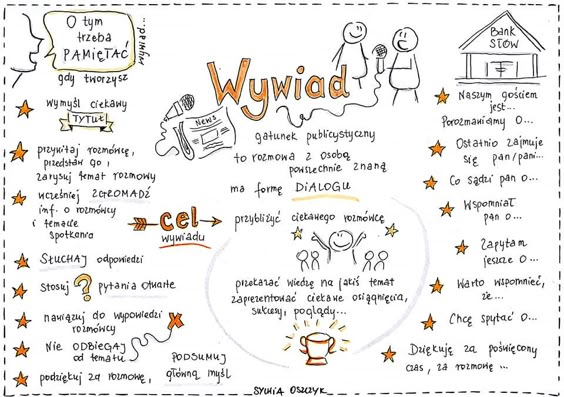 O tym
trzeba
PAMIĘTAĆ
gdy tworzysz
...wywiad
wymyśl ciekawy
TYTUŁ
przywitaj rozmówcę,
przedstaw go,
zarysuj temat rozmowy
wcześniej ZGROMADŹ
inf. o rozmówcy
i temacie
spotkania
SŁUCHAJ odpowiedzi
stosuj ? pytania otwarte
nawiązuj do wypowiedzi
rozmówcy
Nie ODBIEGAJ
od tematu
podziękuj za rozmowę,
PODSUMUJ
główną myśl
Wywiad
NEWS
gatunek publicystyczny
to rozmowa z osobą
powszechnie znaną
ma formę DIALOGU
cel
wywiadu
przybliżyć ciekawego rozmówcę
przekazać wiedzę na jakiś temat
zaprezentować ciekawe osiągnięcia,
sukcesy, poglądy...
Bank
SŁÓW
Naszym gościem
jest...
Porozmawiamy o...
Ostatnio zajmuje
się pan/pani...
Co sądzi pan o...
Wspomniał
pan o...
Zapytam
jeszcze o...
Warto wspomnieć,
że...
Chcę spytać o...
Dziękuję za poświęcony
czas, za rozmowę...
SYLWIA OSZCZYK